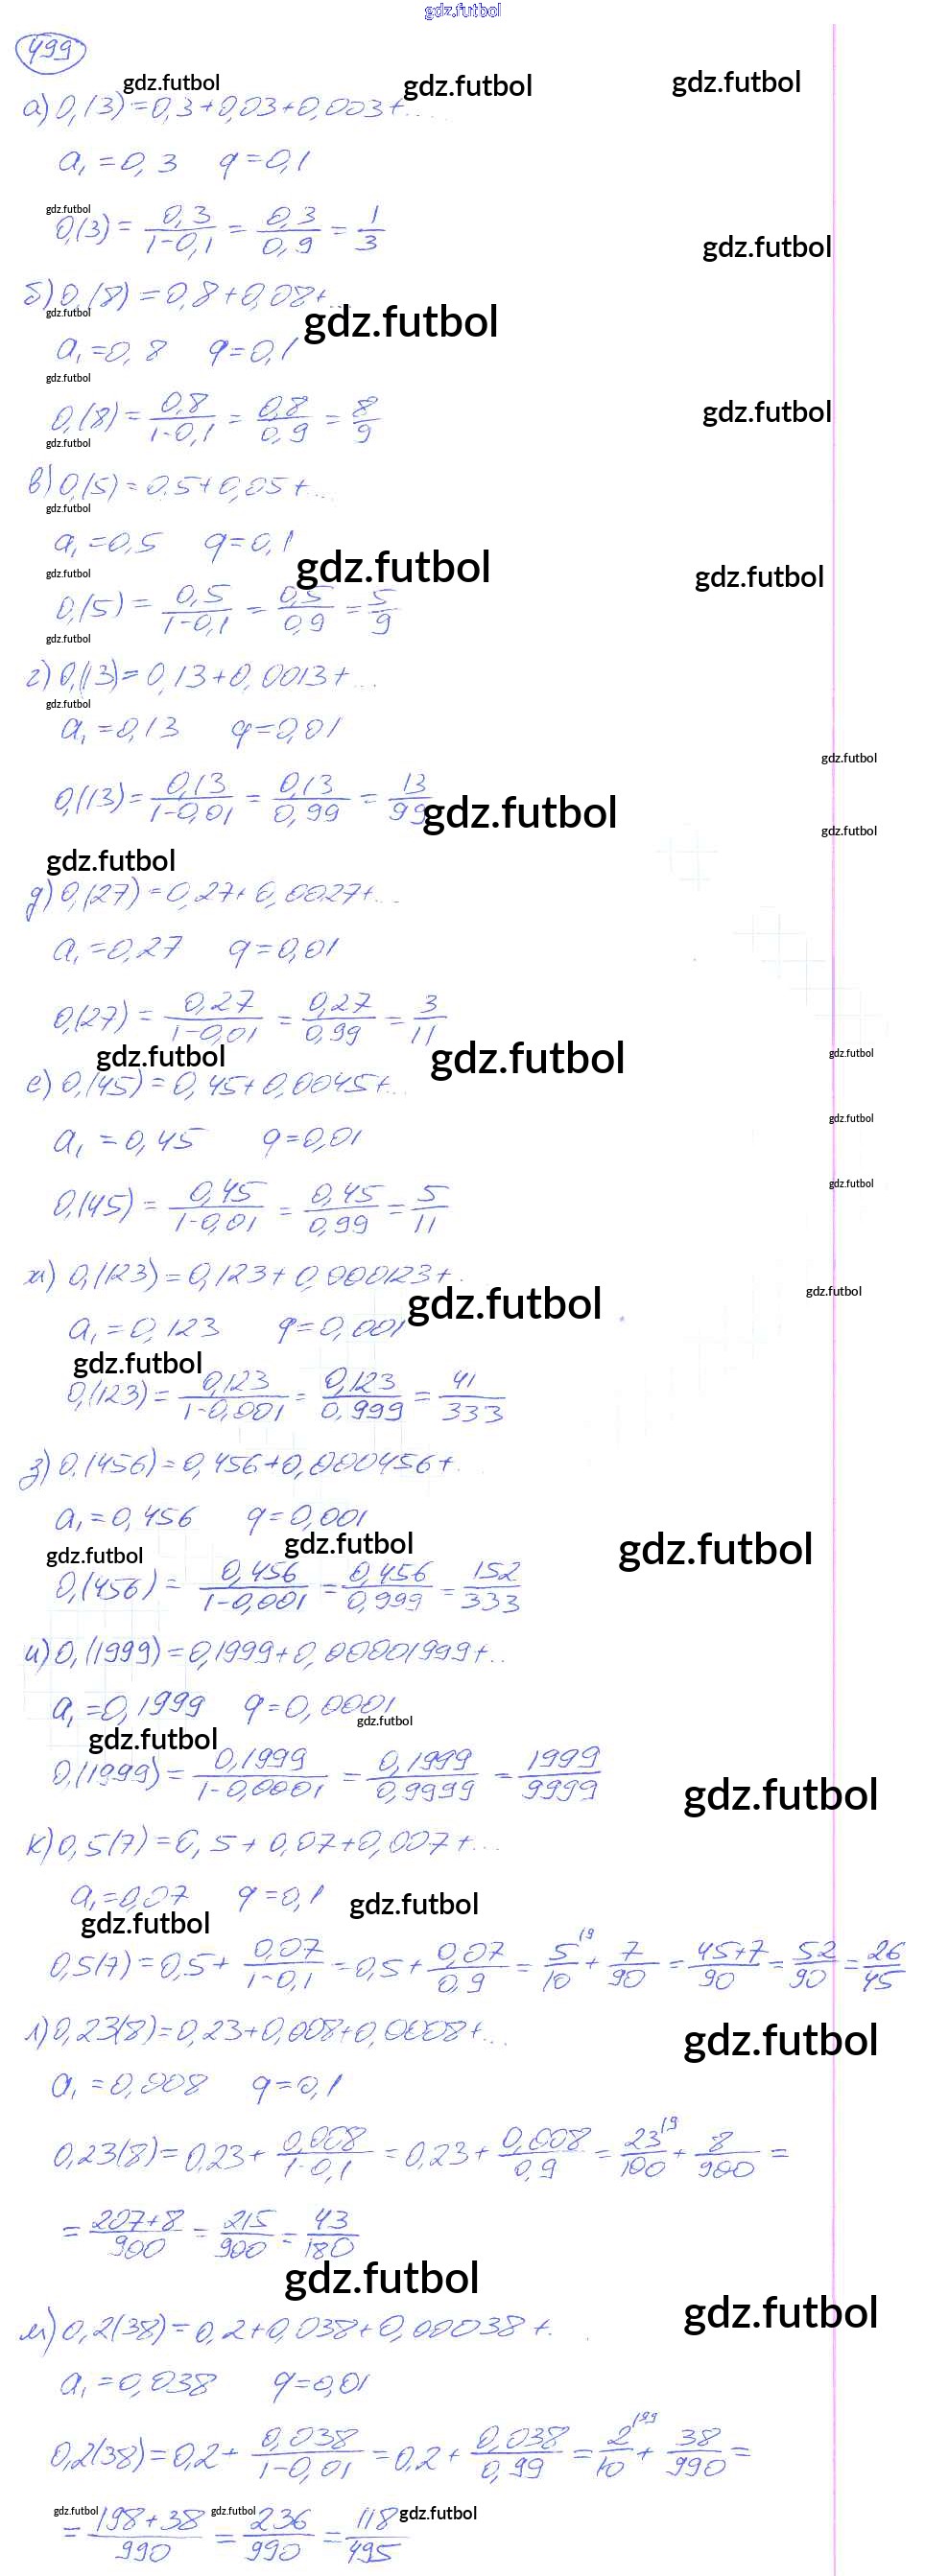 gdz.futbol
499
gdz.futbol gdz.futbol gdz.futbol
а) 0,(3) = 0,3 + 0,03 + 0,003 + ...
a₁ = 0,3 q = 0,1
gdz.futbol
0,(3) = 0,3/(1-0,1) = 0,3/0,9 = 1/3
gdz.futbol
б) 0,(8) = 0,8 + 0,08 + ...
gdz.futbol gdz.futbol
a₁ = 0,8 q = 0,1
gdz.futbol
0,(8) = 0,8/(1-0,1) = 0,8/0,9 = 8/9
gdz.futbol
gdz.futbol
в) 0,(5) = 0,5 + 0,05 + ...
gdz.futbol
a₁ = 0,5 q = 0,1
gdz.futbol gdz.futbol gdz.futbol
0,(5) = 0,5/(1-0,1) = 0,5/0,9 = 5/9
gdz.futbol
г) 0,(13) = 0,13 + 0,0013 + ...
gdz.futbol
a₁ = 0,13 q = 0,01
gdz.futbol
0,(13) = 0,13/(1-0,01) = 0,13/0,99 = 13/99
gdz.futbol
gdz.futbol
gdz.futbol
д) 0,(27) = 0,27 + 0,0027 + ...
a₁ = 0,27 q = 0,01
0,(27) = 0,27/(1-0,01) = 0,27/0,99 = 3/11
gdz.futbol gdz.futbol gdz.futbol
е) 0,(45) = 0,45 + 0,0045 + ...
gdz.futbol
a₁ = 0,45 q = 0,01
gdz.futbol
0,(45) = 0,45/(1-0,01) = 0,45/0,99 = 5/11
ж) 0,(123) = 0,123 + 0,000123 + .
gdz.futbol gdz.futbol
a₁ = 0,123 q = 0,001
gdz.futbol
0,(123) = 0,123/(1-0,001) = 0,123/0,999 = 41/333
з) 0,(456) = 0,456 + 0,000456 + .
a₁ = 0,456 q = 0,001
gdz.futbol gdz.futbol gdz.futbol
0,(456) = 0,456/(1-0,001) = 0,456/0,999 = 152/333
и) 0,(1999) = 0,1999 + 0,00001999 + ..
a₁ = 0,1999 q = 0,0001
gdz.futbol
gdz.futbol
0,(1999) = 0,1999/(1-0,0001) = 0,1999/0,9999 = 1999/9999
gdz.futbol
к) 0,5(7) = 0,5 + 0,07 + 0,007 + ...
a₁ = 0,07 q = 0,1
gdz.futbol
gdz.futbol
0,5(7) = 0,5 + 0,07/(1-0,1) = 0,5 + 0,07/0,9 = 5/10 |9 + 7/90 = (45+7)/90 = 52/90 = 26/45
л) 0,23(8) = 0,23 + 0,008 + 0,0008 + ...
gdz.futbol
a₁ = 0,008 q = 0,1
0,23(8) = 0,23 + 0,008/(1-0,1) = 0,23 + 0,008/0,9 = 23/100 |9 + 8/900 =
= (207+8)/900 = 215/900 = 43/180
gdz.futbol
gdz.futbol
м) 0,2(38) = 0,2 + 0,038 + 0,00038 + .
a₁ = 0,038 q = 0,01
0,2(38) = 0,2 + 0,038/(1-0,01) = 0,2 + 0,038/0,99 = 2/10 |99 + 38/990 =
gdz.futbol gdz.futbol gdz.futbol
= (198+38)/990 = 236/990 = 118/495